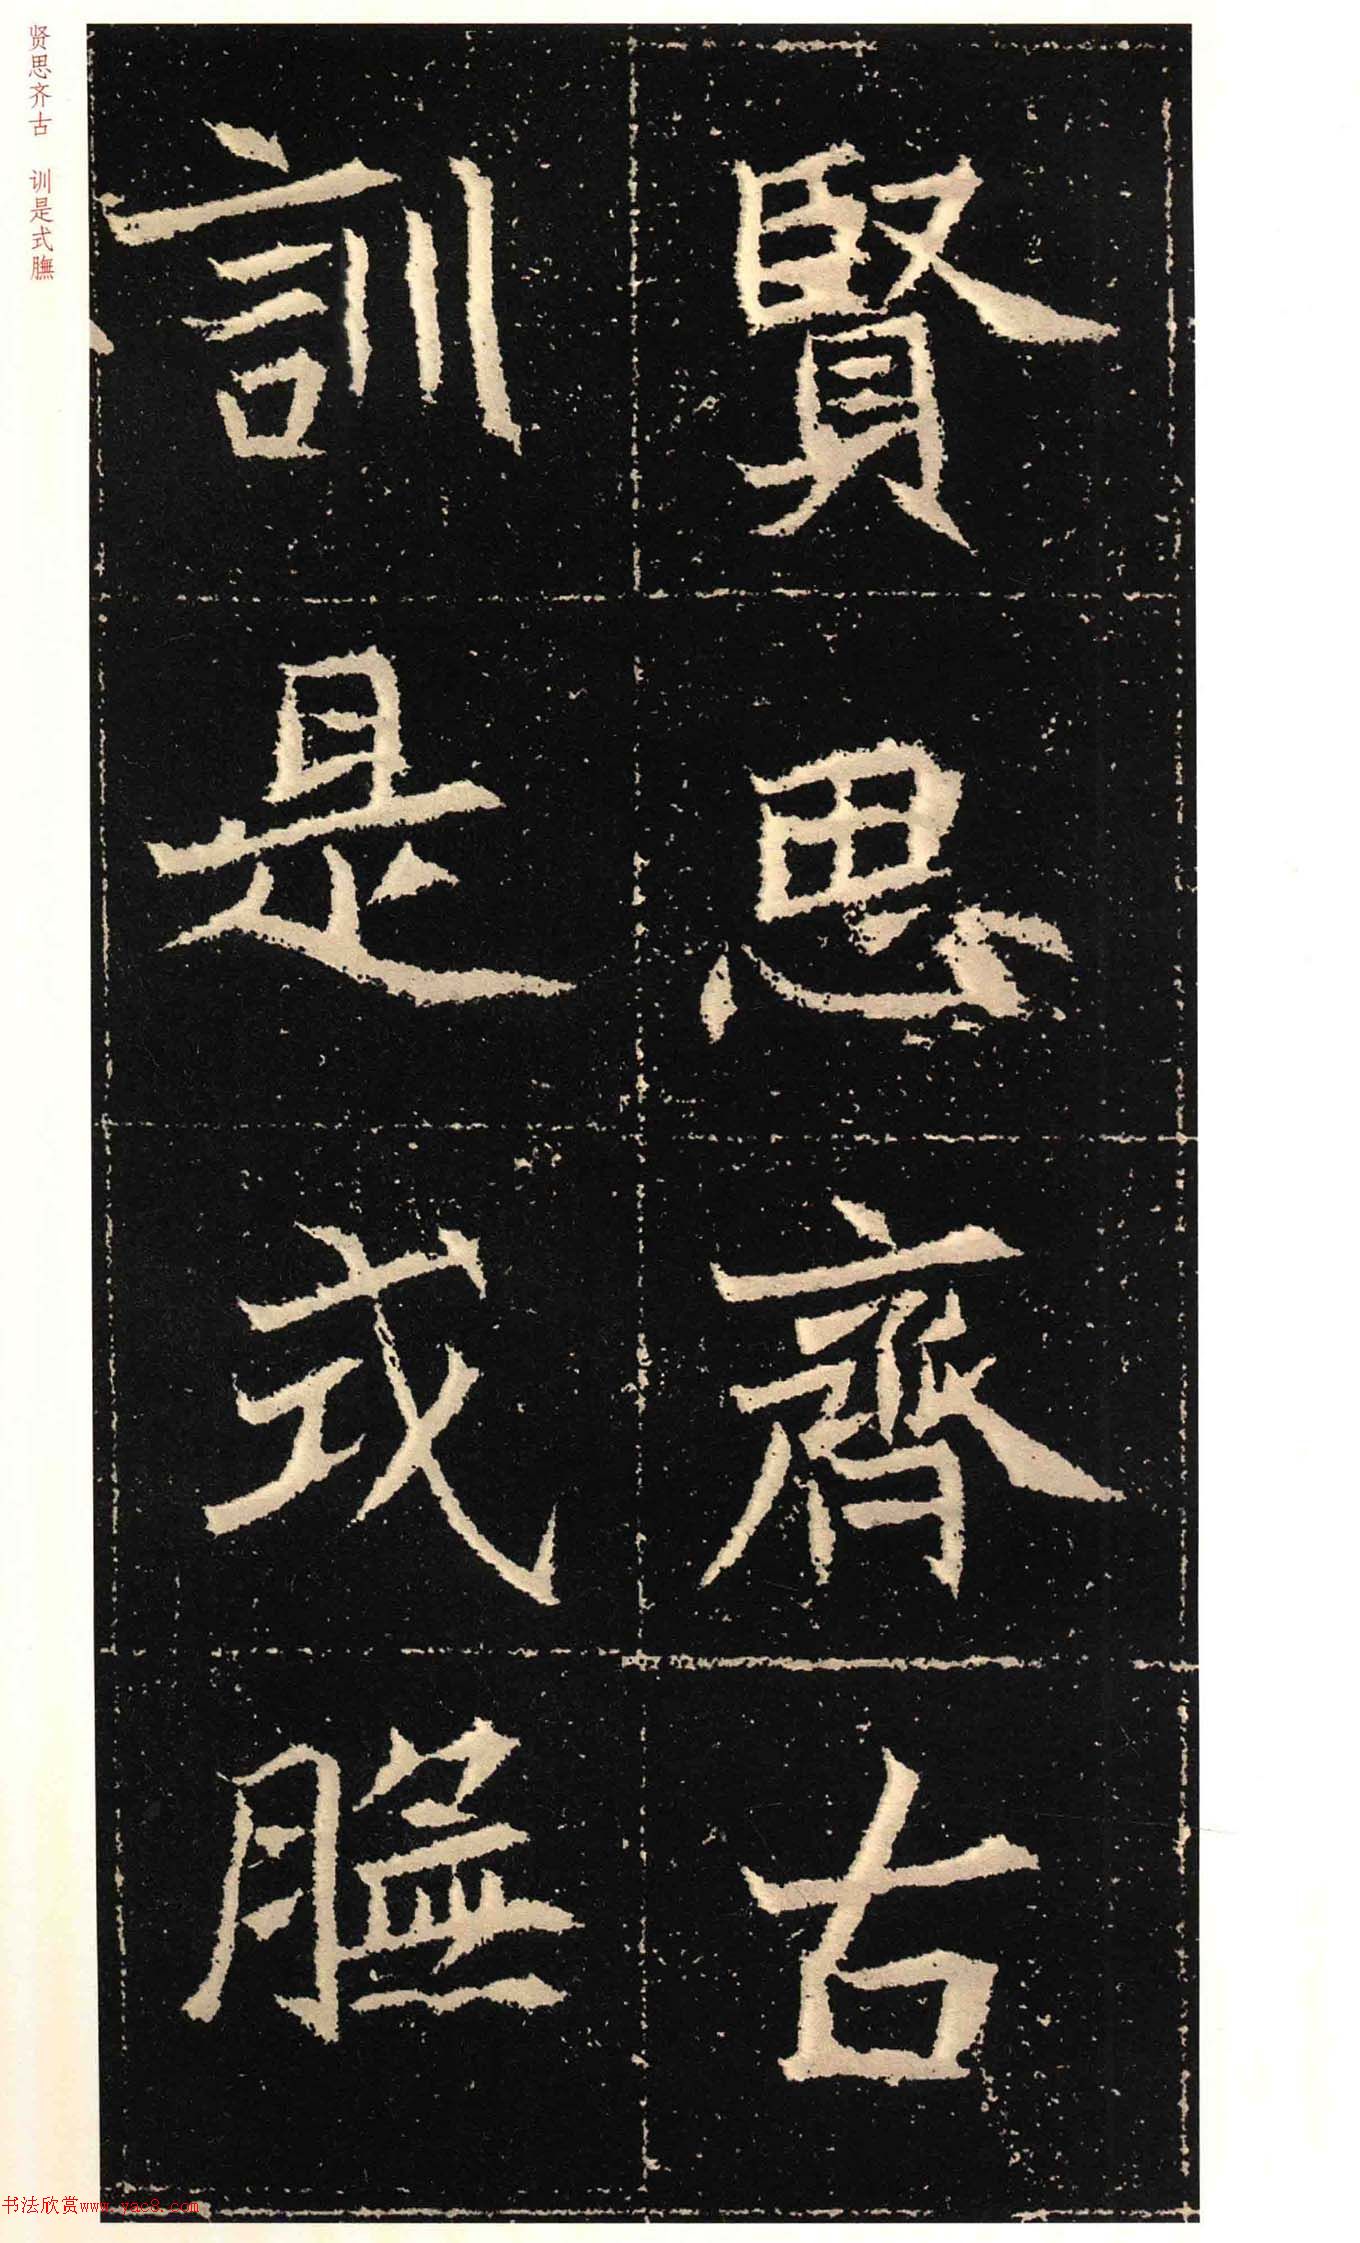 賢思齊古
訓是式膴
贤思齐古 训是式膴
书法欣赏www.yac8.com